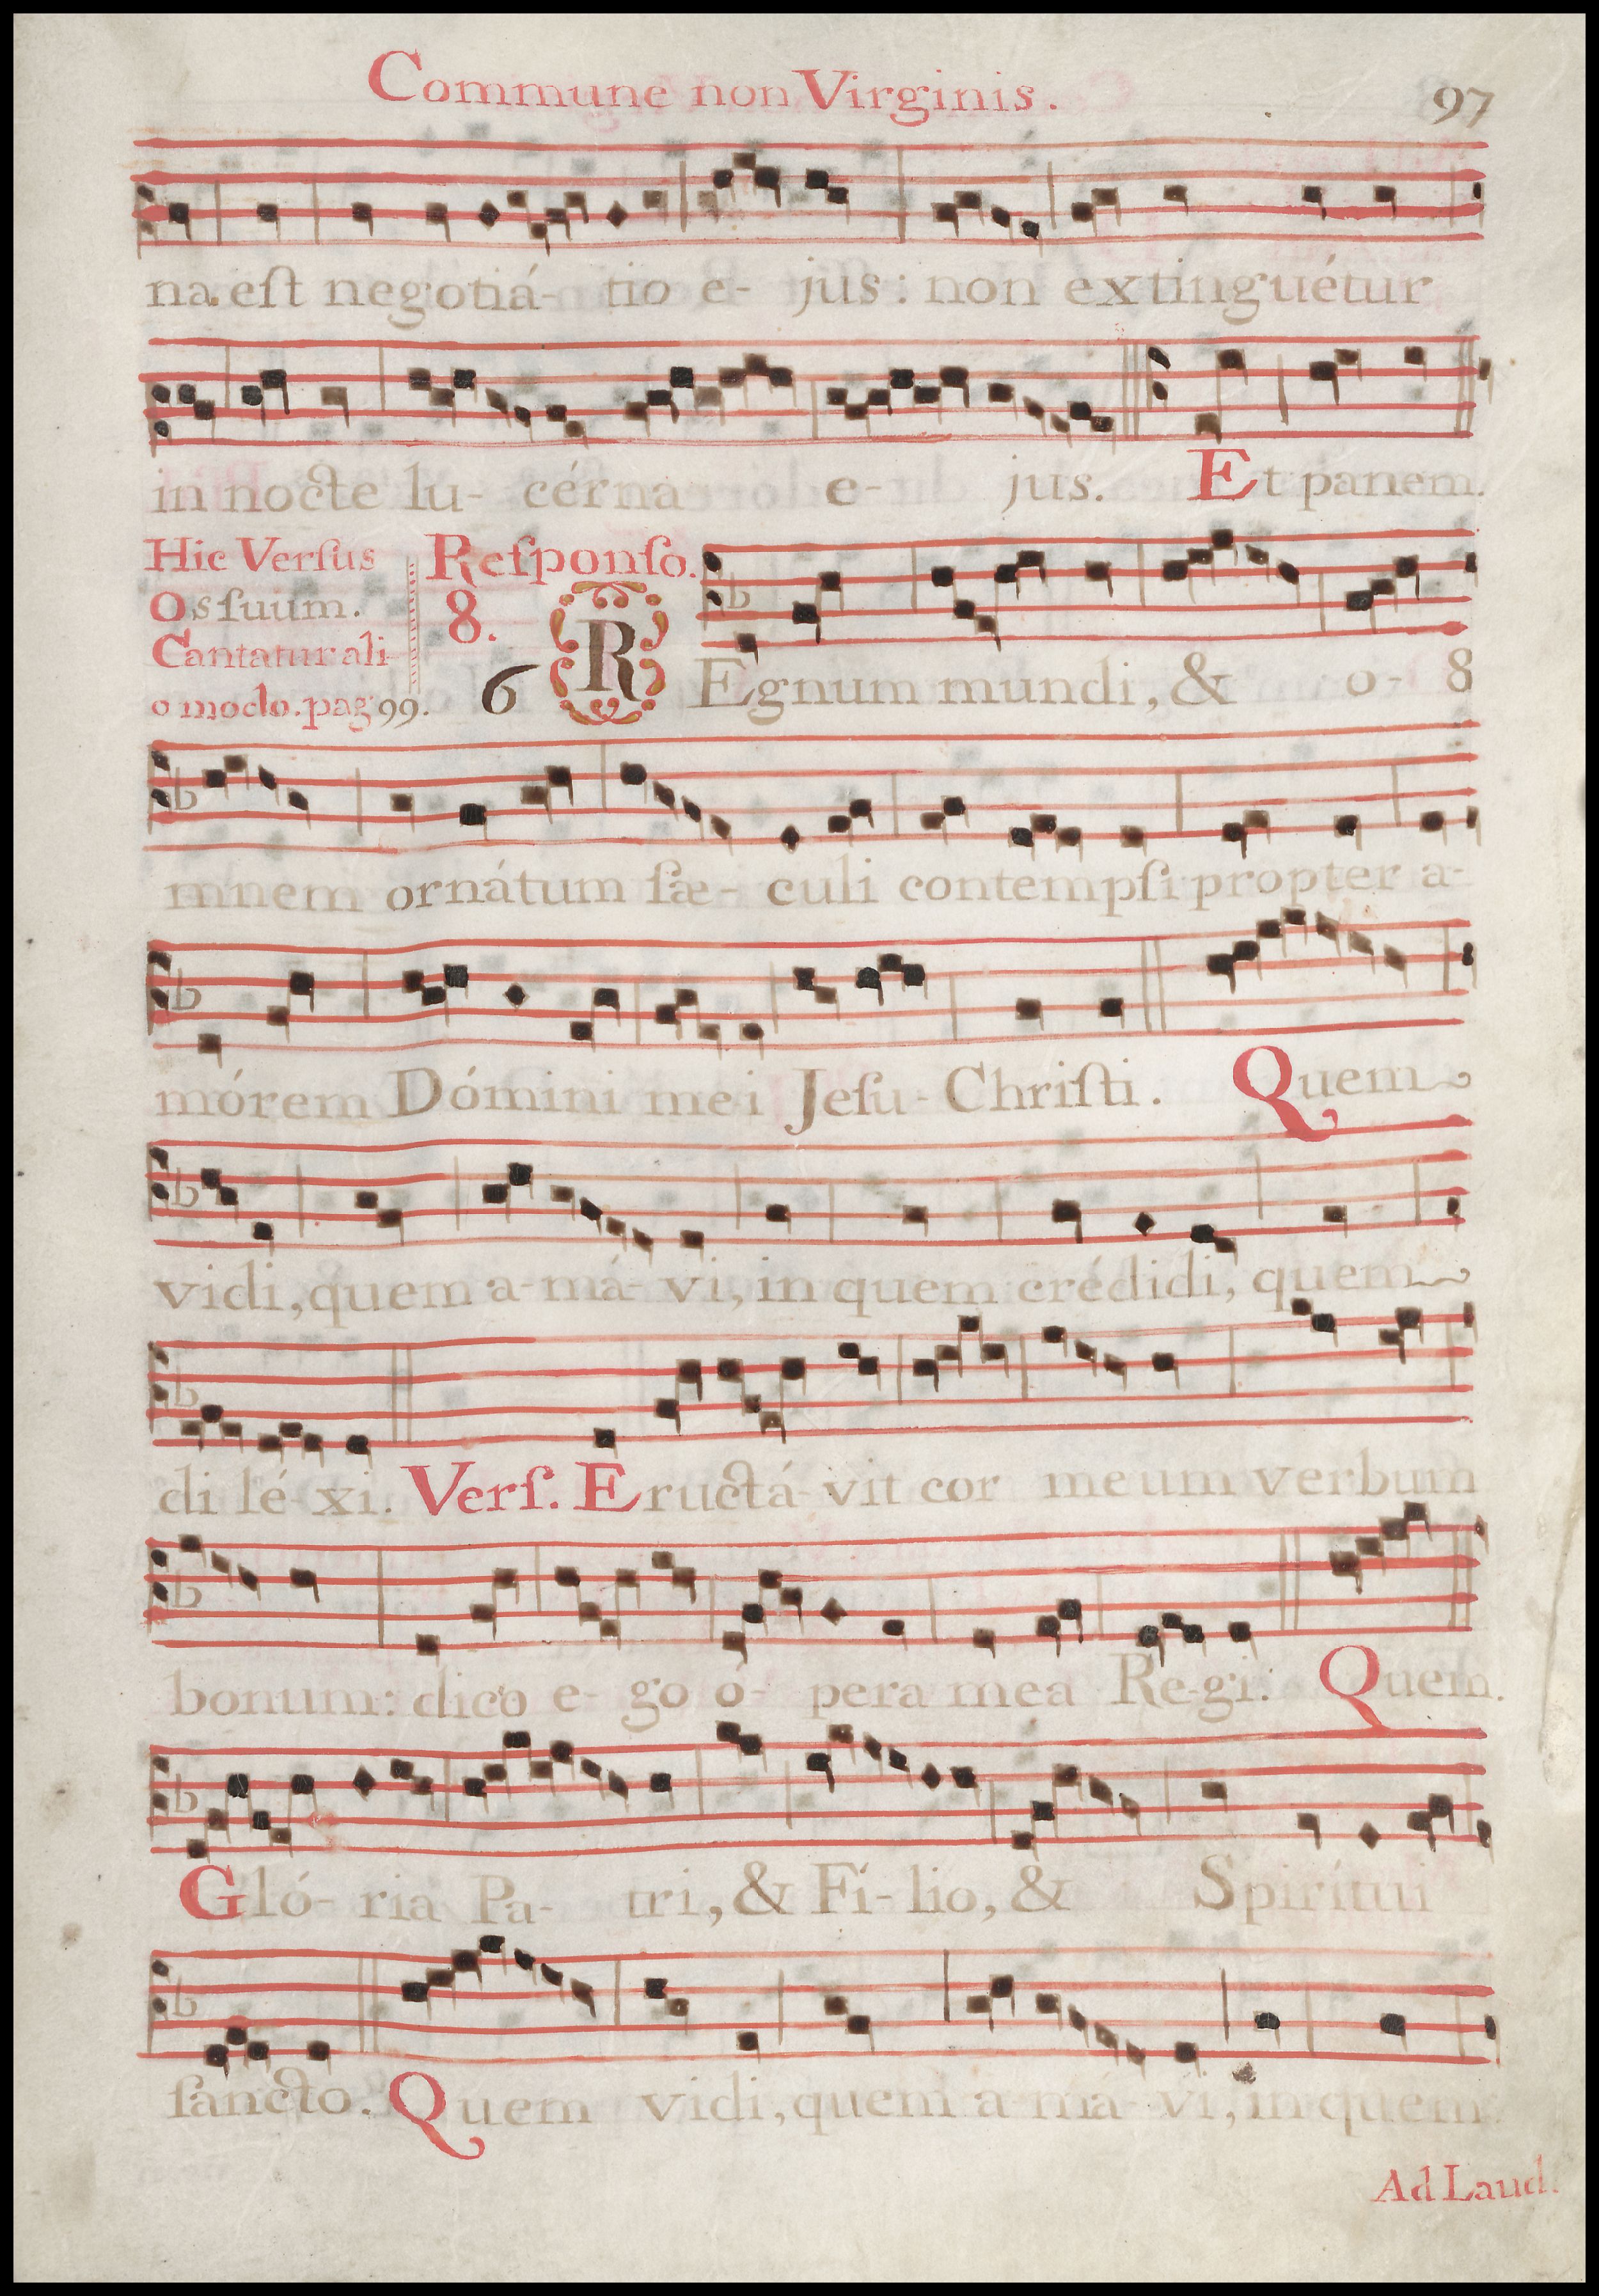 Commune non Virginis. 97
na est negotiá- tio e- jus: non extinguétur
in nocte lu- cérna e- jus. Et panem.
Hic Verſus
Os ſuum.
Cantatur ali
o modo. pag 99.
Reſponſo.
8.
6 R Egnum mundi, & o- 8
mnem ornátum ſæ- culi contempſi propter a-
mórem Dómini mei Jeſu- Chriſti. Quem
vidi, quem a-má- vi, in quem crédidi, quem
di lé-xi. Verſ. Eructá-vit cor meum verbum
bonum: dico e- go ó- pera mea Re-gi: Quem.
Gló- ria Pa- tri, & Fí-lio, & Spirítui
ſancto. Quem vidi, quem a-má-vi, in quem
Ad Laud.